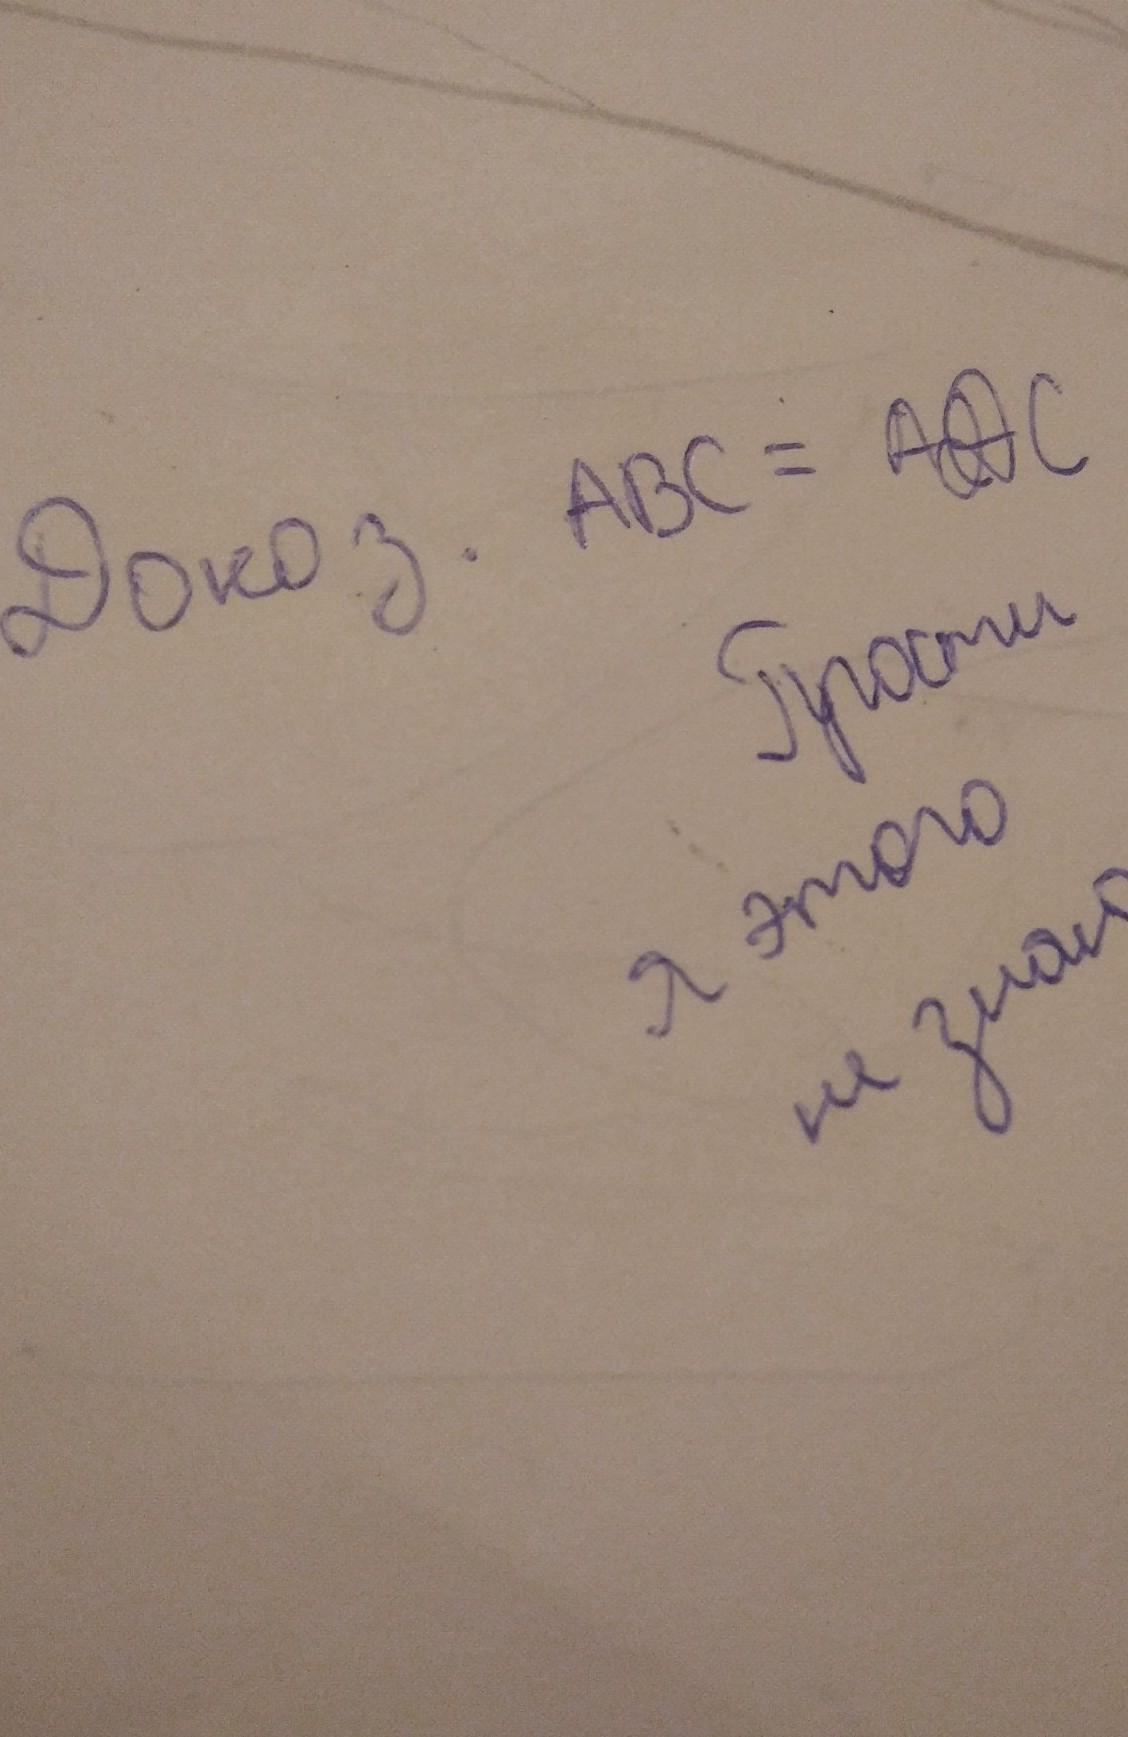 Доказ. ABC = ADC
Прости
я этого
не знаю